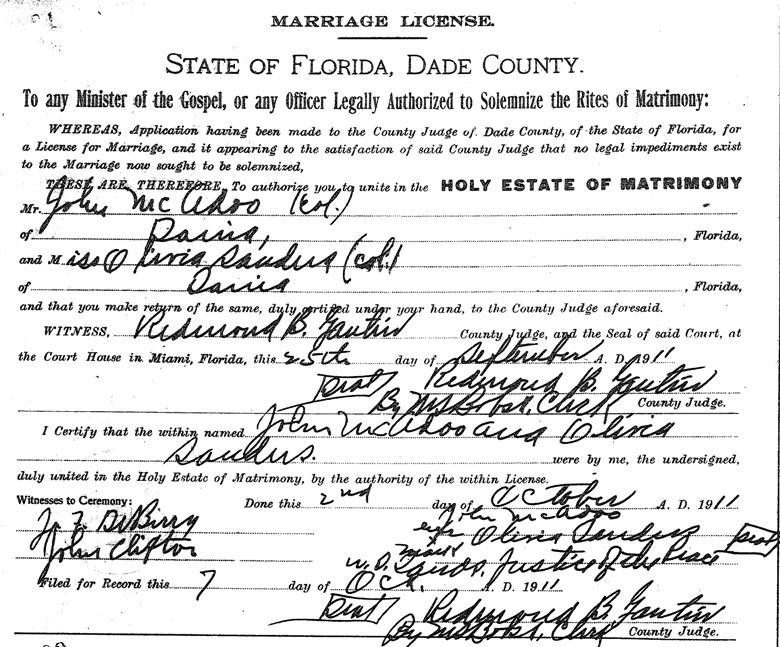 MARRIAGE LICENSE.
STATE OF FLORIDA, DADE COUNTY.
To any Minister of the Gospel, or any Officer Legally Authorized to Solemnize the Rites of Matrimony:
WHEREAS, Application having been made to the County Judge of Dade County, of the State of Florida, for
a License for Marriage, and it appearing to the satisfaction of said County Judge that no legal impediments exist
to the Marriage now sought to be solemnized,
THESE ARE THEREFORE, To authorize you to unite in the HOLY ESTATE OF MATRIMONY
Mr. John McAdoo (col.)
of Dania, , Florida,
and Miss Olivia Sanders (col.)
of Dania , Florida,
and that you make return of the same, duly certified under your hand, to the County Judge aforesaid.
WITNESS, Redmond B. Gautier County Judge, and the Seal of said Court, at
the Court House in Miami, Florida, this 25th day of September A. D. 1911
Seal Redmond B. Gautier
By Clerk County Judge.
I Certify that the within named John McAdoo and Olivia
Sanders. were by me, the undersigned,
duly united in the Holy Estate of Matrimony, by the authority of the within License.
Witnesses to Ceremony: Done this 2nd day of October A. D. 1911
John McAdoo
DeBerry Olivia Sanders Seal
mark
John Clifton Justice of the Peace
Filed for Record this 7 day of Oct. A. D. 1911
Seal Redmond B. Gautier
By Clerk County Judge.